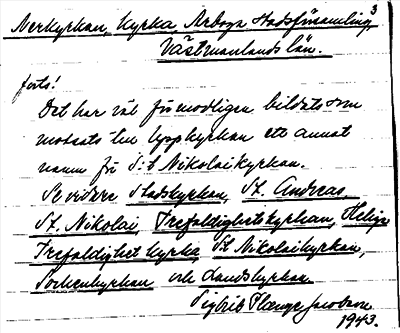 3
Nerkyrkan, Kyrka Arboga Stadsförsamling,
Västmanlands län.
forts!
Det har väl förmodligen bildats som
motsats till Uppkyrkan ett annat
namn för S:t Nikolaikyrkan.
Se vidare Stadskyrkan, St. Andreas,
St. Nikolai, Trefaldighetskyrkan, Helig
Trefaldighet kyrka, St. Nikolaikyrkan,
Sockenkyrkan och Landskyrkan.
Sigbrit Plænge Jacobson
1943.